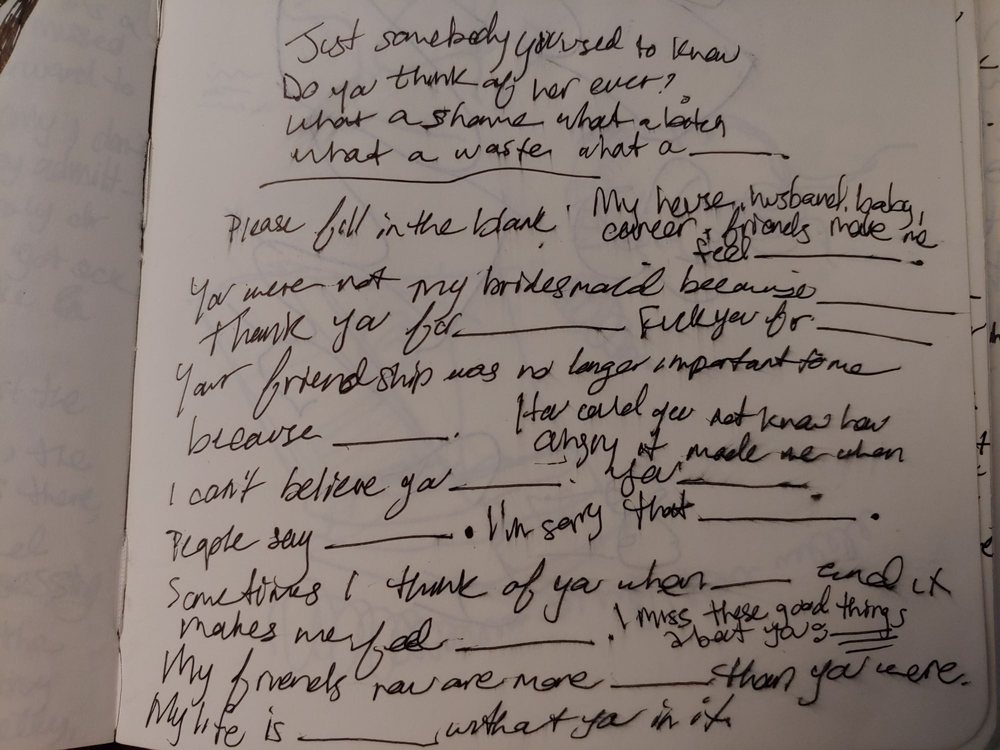 Just somebody you used to know
Do you think of her ever?
what a shame what a
what a waste what a ______.
Please fill in the blank: My house, husband, baby,
career & friends make me
feel ______.
You were not my bridesmaid because ______
Thank you for ______ Fuck you for ______
Your friendship was no longer important to me
because ______. How could you not know how
angry it made me when
I can't believe you ______. you ______.
People say ______. I'm sorry that ______.
Sometimes I think of you when ____ and it
makes me feel ______. I miss these good things
about you: ____
My friends now are more ______ than you were.
My life is ______ without you in it.